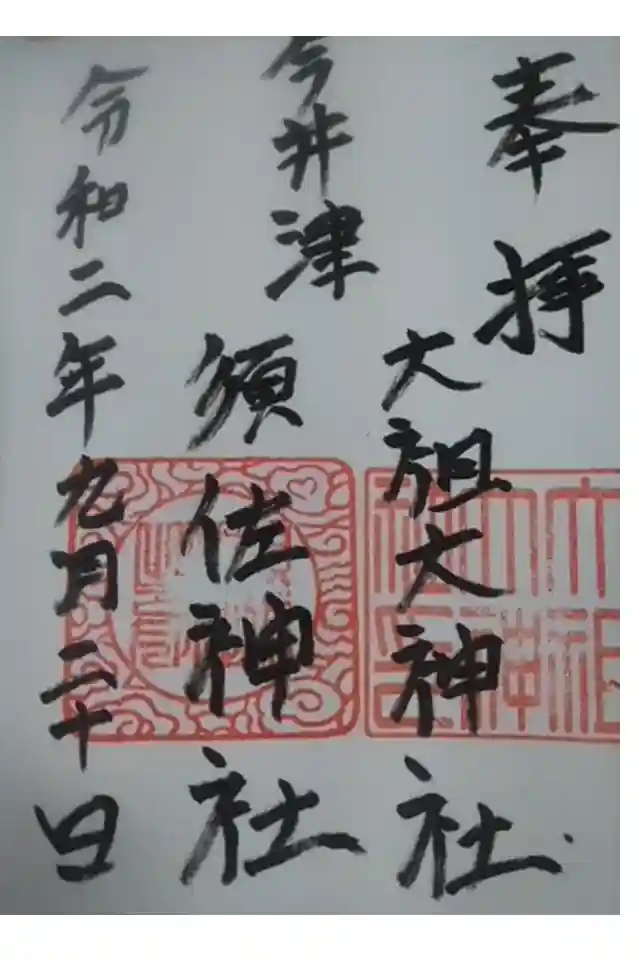 奉拝
大祖大神社
今井津
須佐神社
令和二年九月二十日
大祖大神社